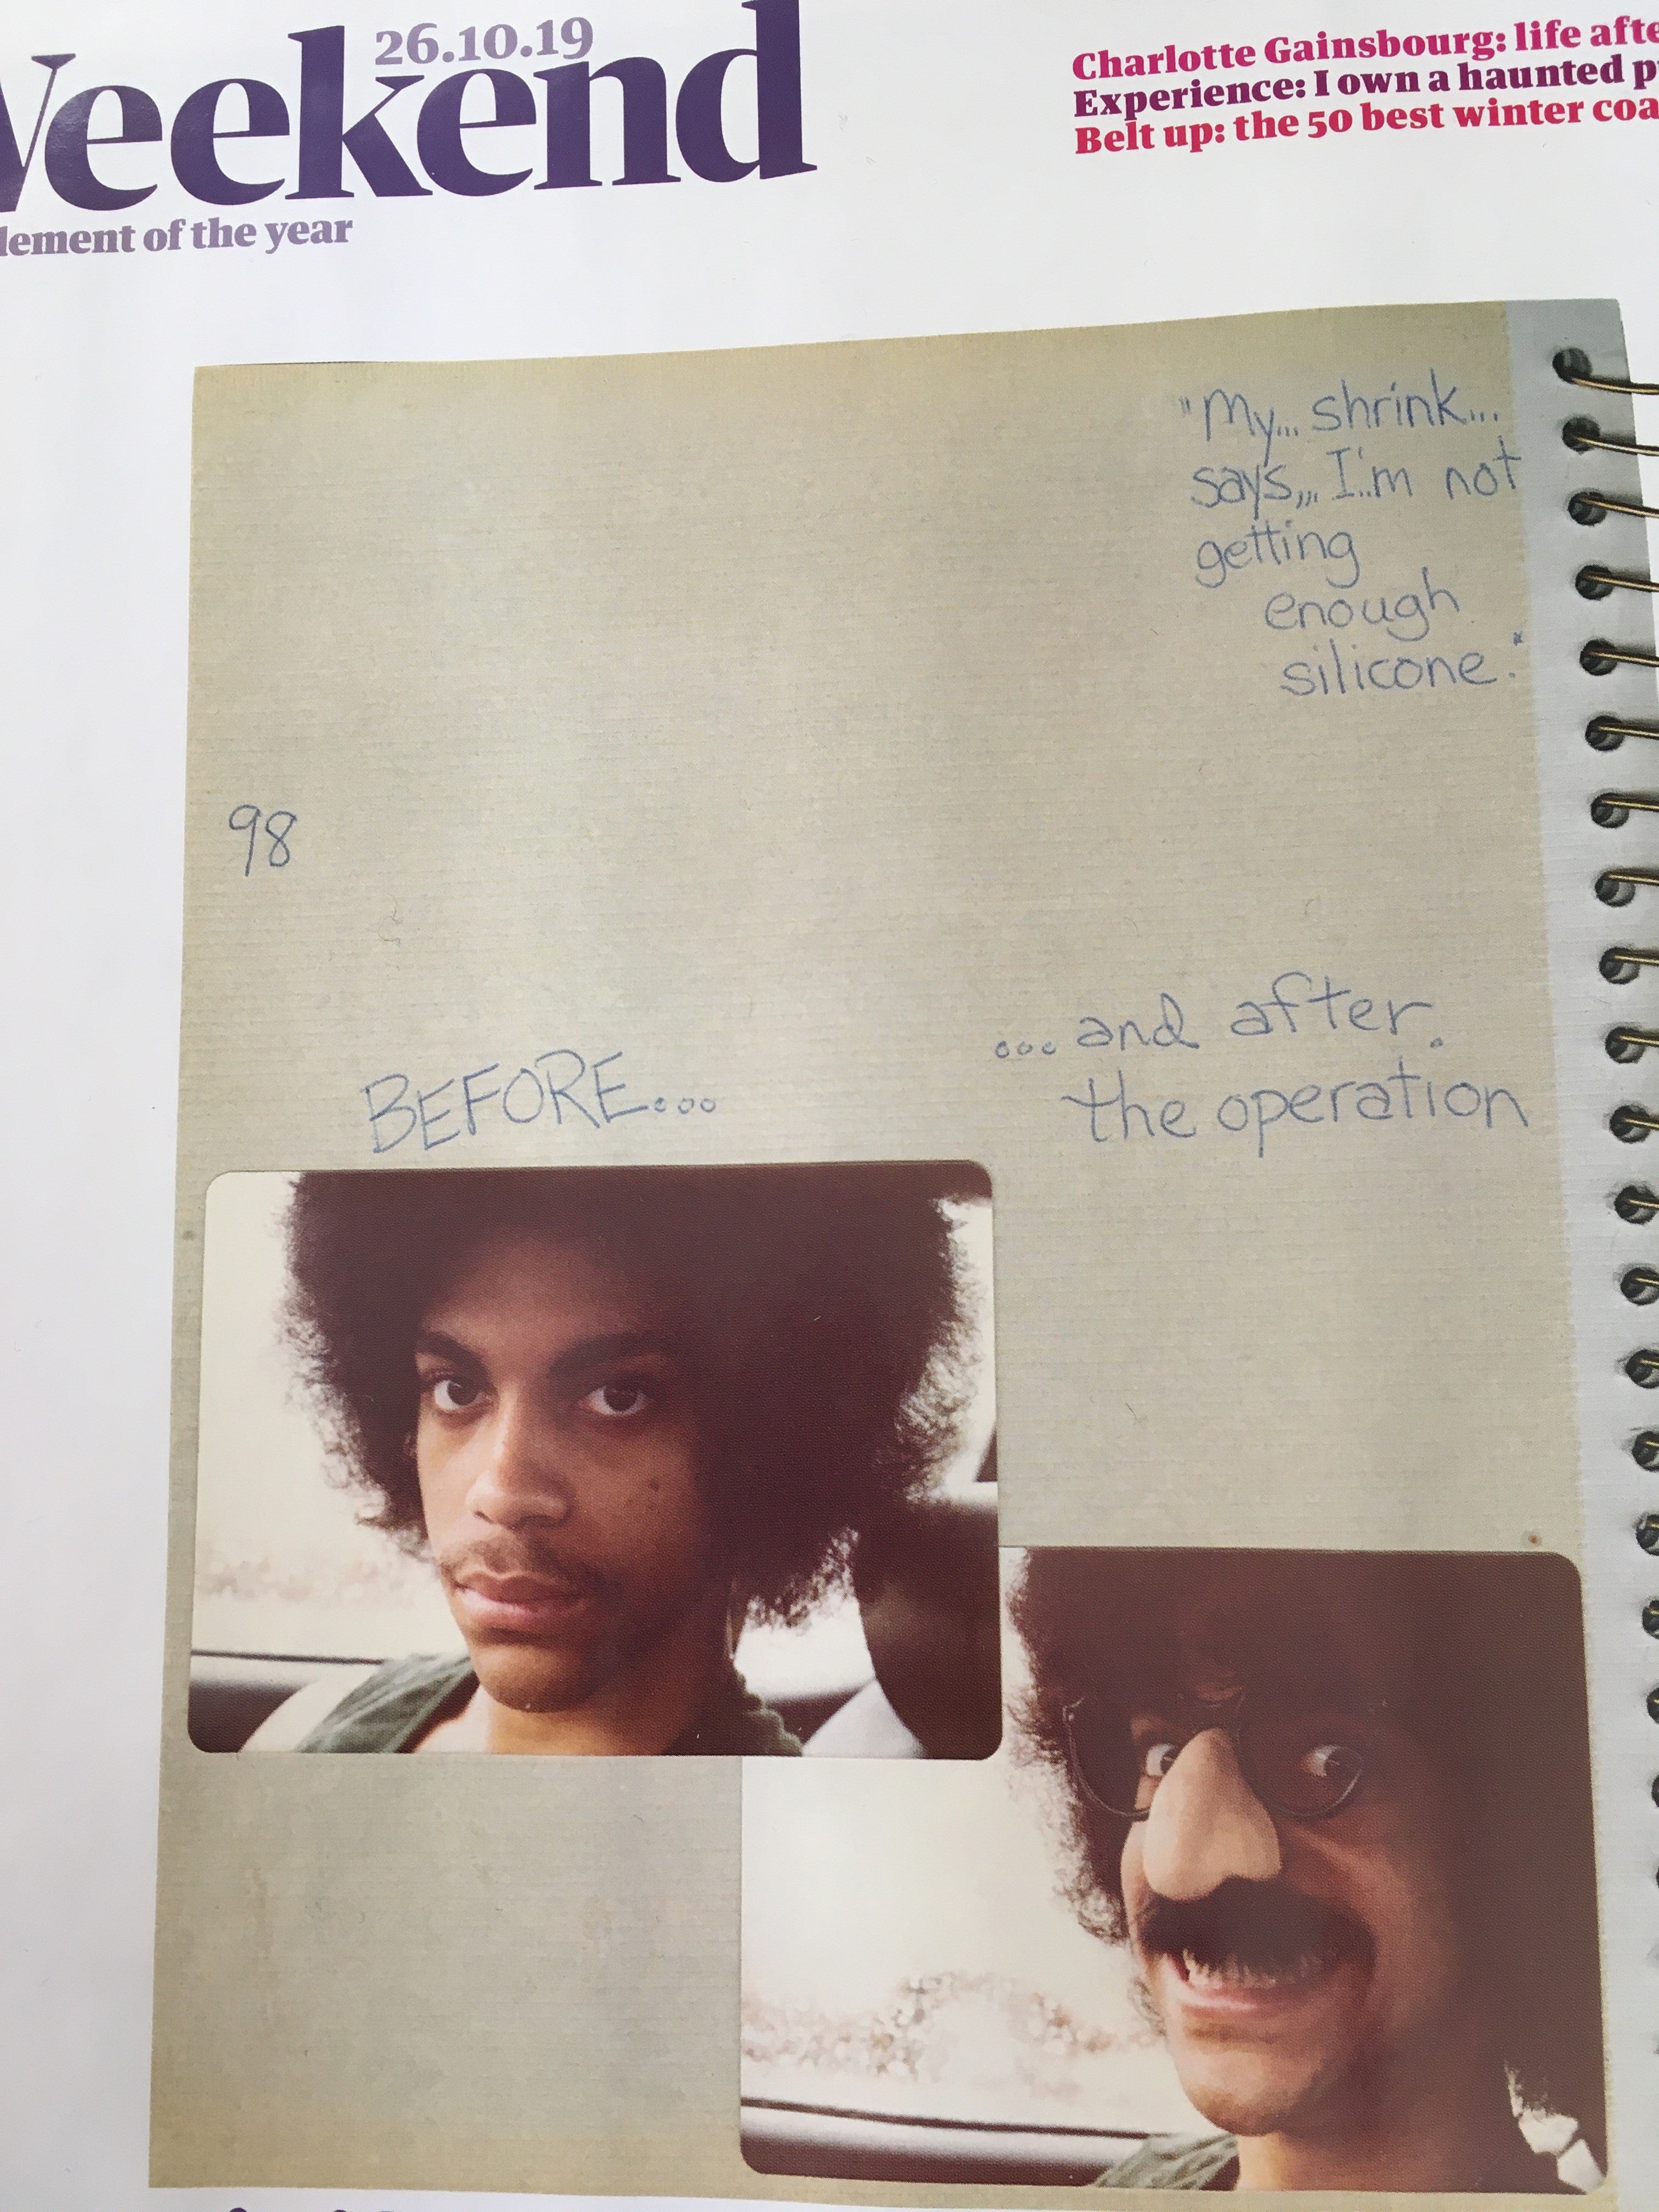 26.10.19
Weekend
lement of the year
Charlotte Gainsbourg: life afte
Experience: I own a haunted p
Belt up: the 50 best winter coa
"My... shrink...
says,,, I'm not
getting
enough
silicone."
98
BEFORE...
... and after.
the operation